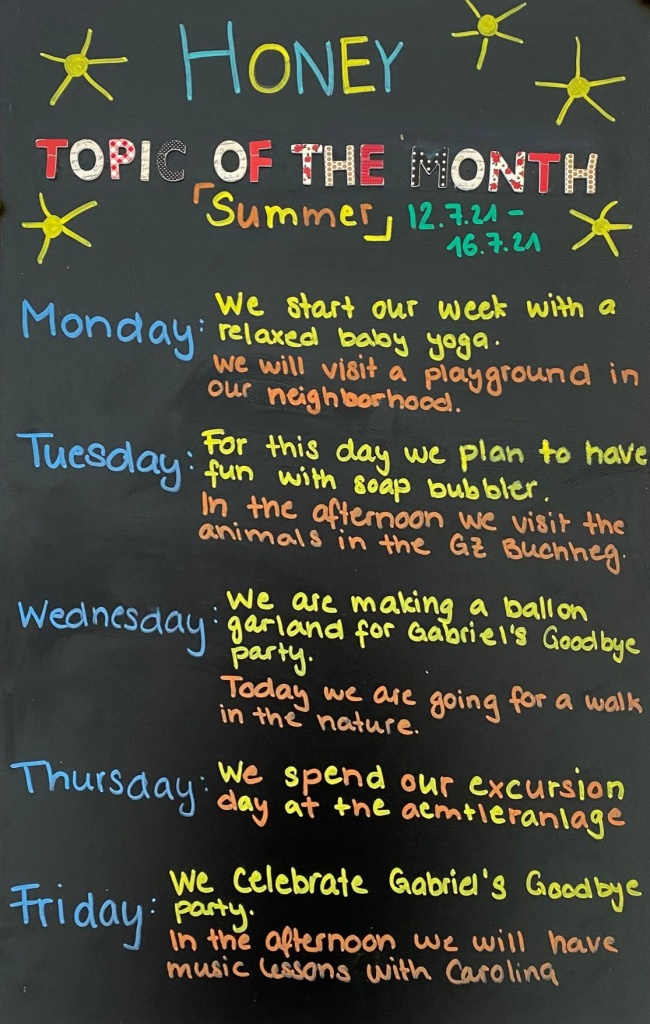 HONEY
TOPIC OF THE MONTH
「Summer」 12.7.21 -
16.7.21
Monday: We start our week with a
relaxed baby yoga.
we will visit a playground in
our neighborhood.
Tuesday: For this day we plan to have
fun with soap bubbler.
In the afternoon we visit the
animals in the GZ Buchheg.
Wednesday: We are making a ballon
garland for Gabriel's Goodbye
party.
Today we are going for a walk
in the nature.
Thursday: We spend our excursion
day at the aemtleranlage
Friday: We celebrate Gabriel's Goodbye
party.
In the afternoon we will have
music lessons with Carolina